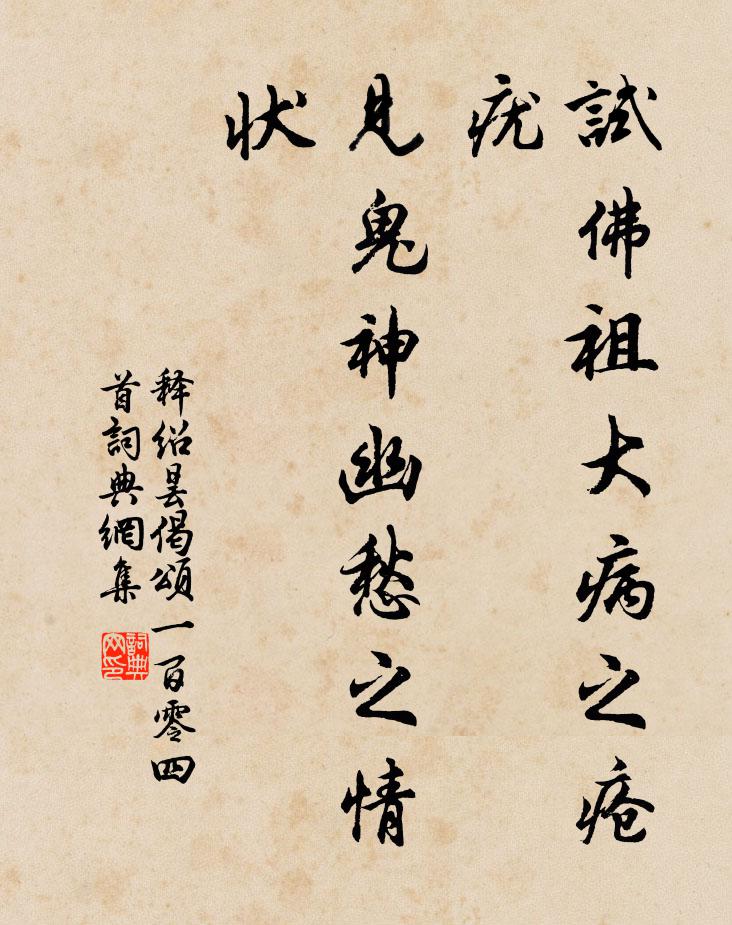 試佛祖大病之疮
疣
見鬼神幽愁之情
狀
释绍昙偈頌一百零四
首詞典網集
詞典
网印